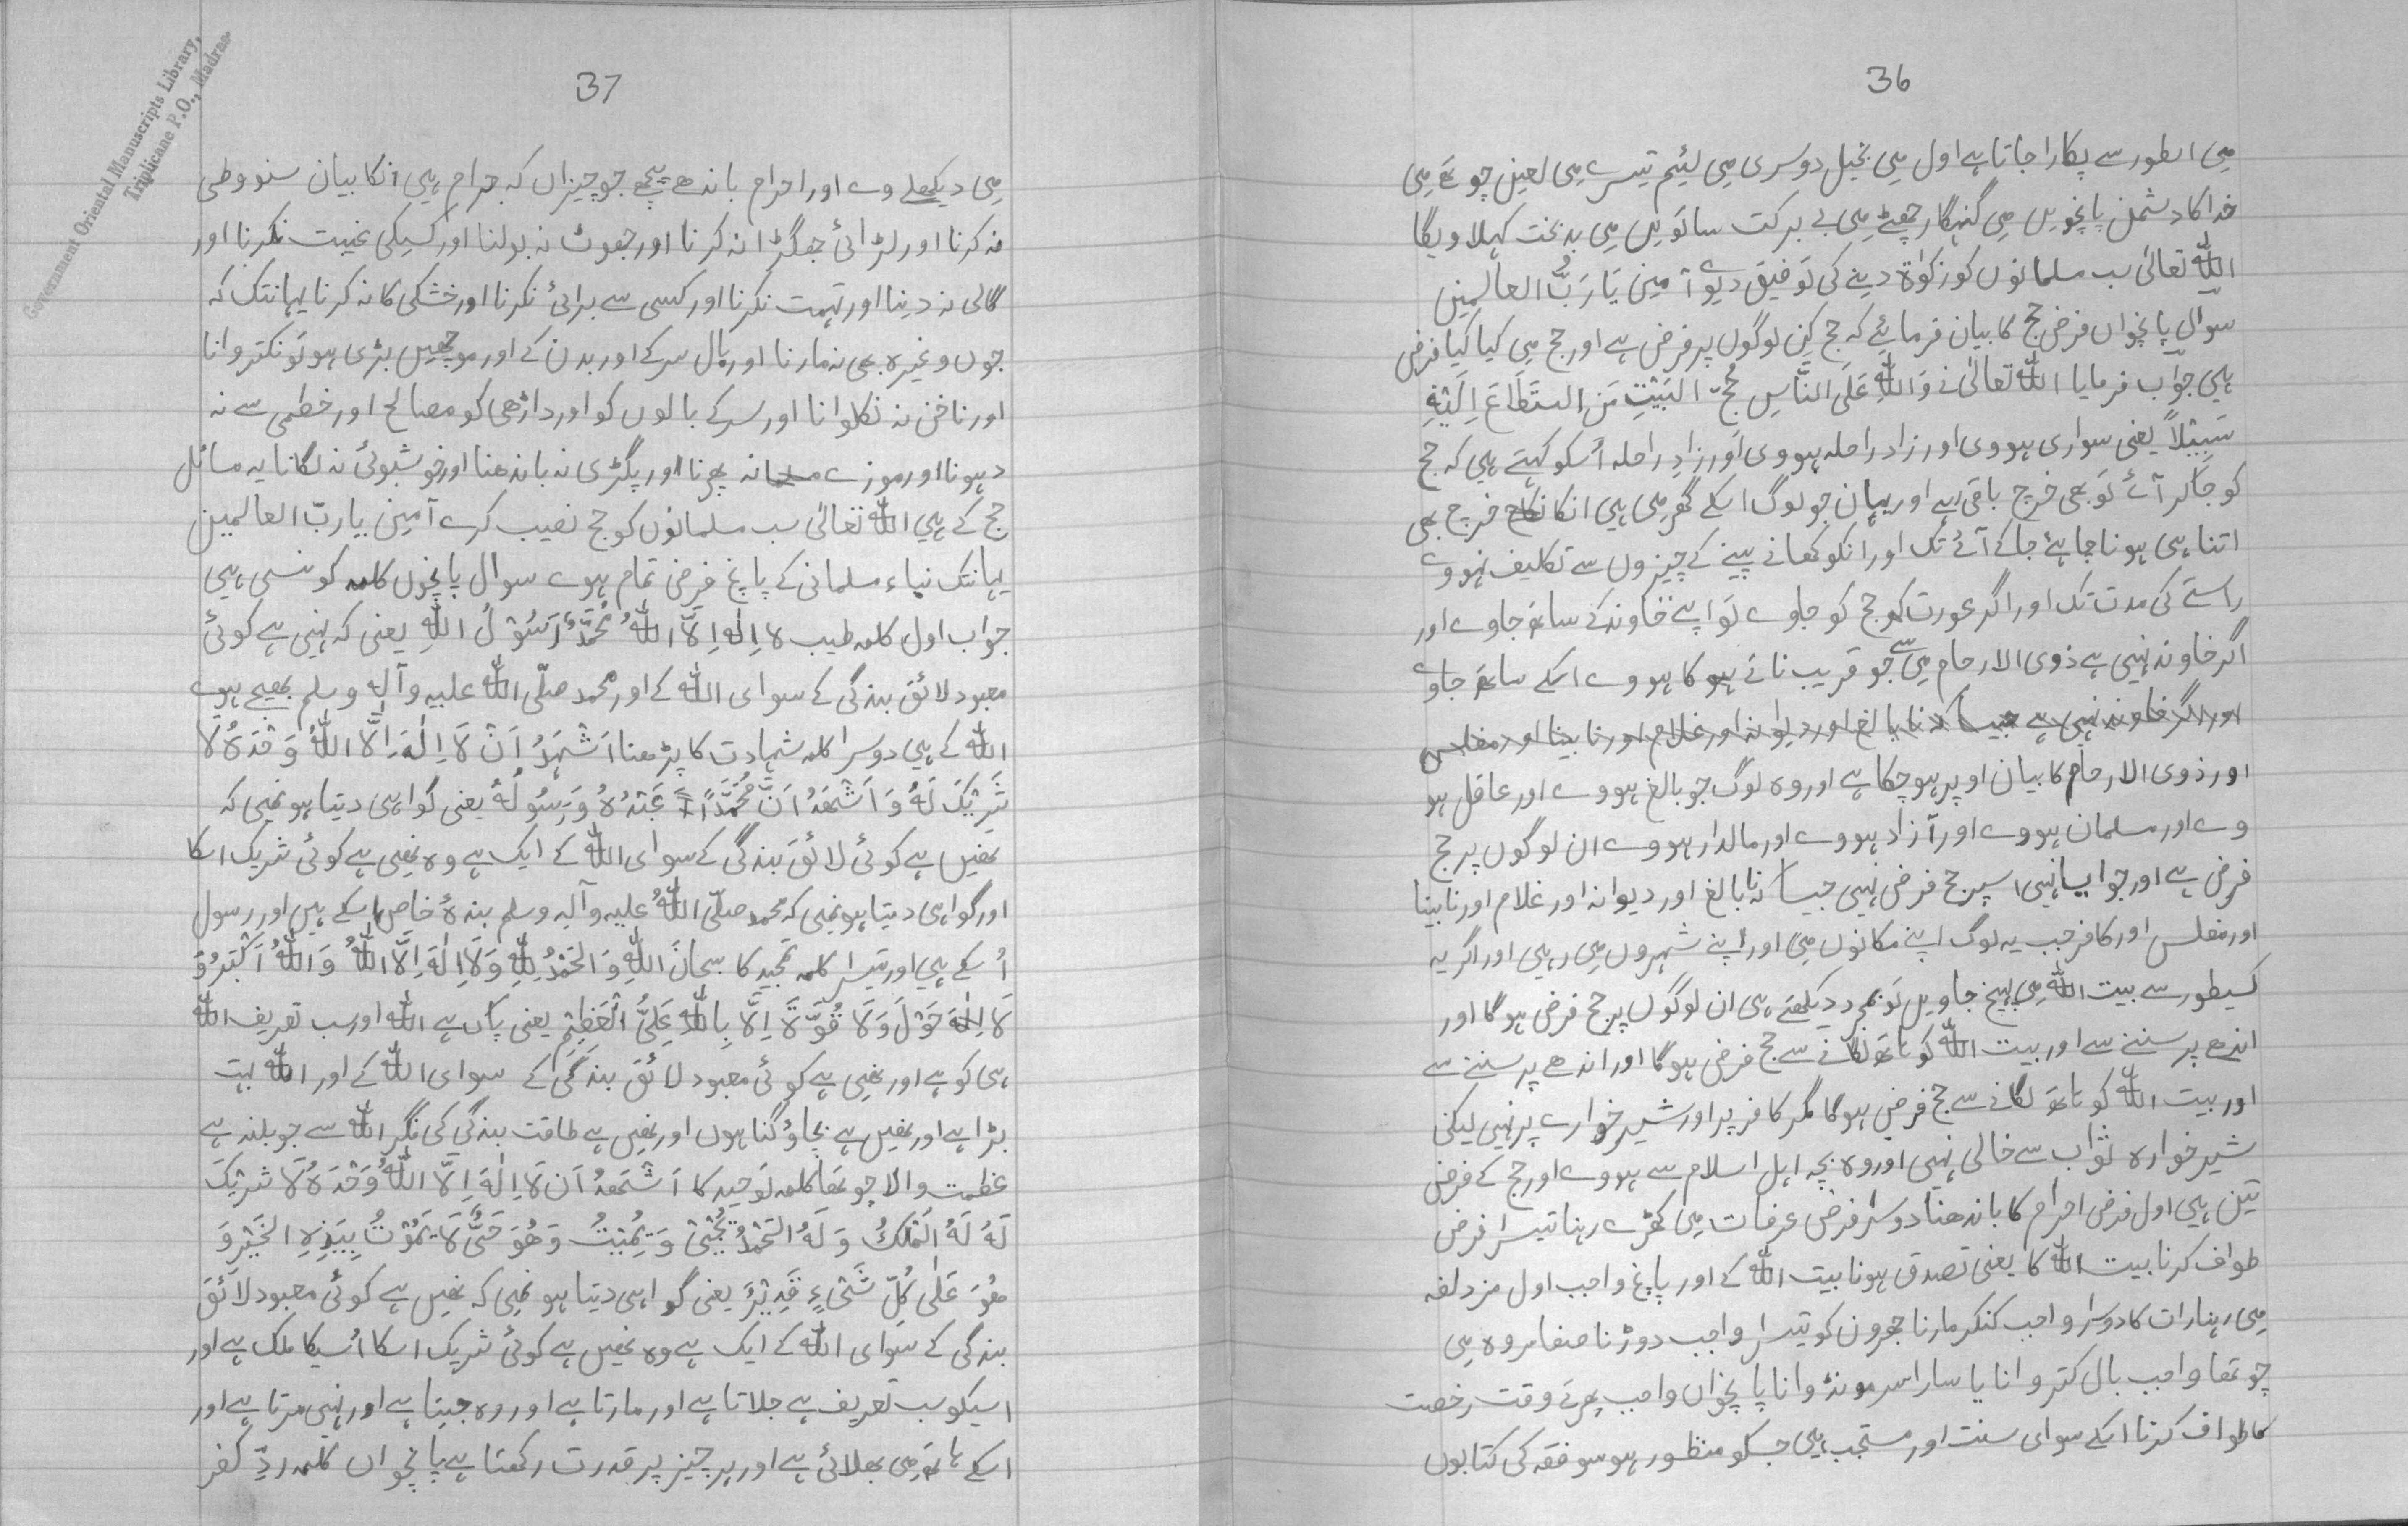 36
میں اسطور سے پکارا جاتا ہے اول میں بخیل دوسری میں لئیم تیسرے میں لعین چوتھے میں
خدا کا دشمن پانچویں میں گنہگار چھٹے میں بے برکت ساتویں میں بدبخت کہلاویگا
اللہ تعالیٰ سب مسلمانوں کو زکوٰۃ دینے کی توفیق دیوے آمین یَا رَبُّ العالمین
سوال پانچواں فرض حج کا بیان فرمائیے کہ حج کِن لوگوں پر فرض ہے اور حج میں کیا کیا فرض
ہیں جواب فرمایا اللہ تعالیٰ نے وَاللّٰہِ عَلَی النَّاسِ حُجّ البَیْتِ مَن استَطَاعَ اِلَیْہِ
سَبِیْلاً یعنی سواری ہووی اور زاد راحلہ ہووی اور زادِ راحلہ اُسکو کہتے ہیں کہ حج
کو جاکر آئے تو بھی خرچ باقی رہے اور یہان جو لوگ اسکے گھر میں ہیں انکا خرچ بھی
اتنا ہی ہونا چاہئے جا کے آئے تک اور انکو کھانے پینے کے چیزوں سے تکلیف نہووے
راستے کی مدت تک اور اگر عورت حج کو جاوے تو اپنے خاوند کے ساتھ جاوے اور
اگر خاوند نہیں ہے ذوی الارحام میں سے جو قریب ناتے کا ہووے اسکے ساتھ جاوے
اور اگر خاوند نہیں ہے جیسا کہ نابالغ اور دیوانہ اور غلام اور نابینا اور مفلس
اور ذوی الارحام کا بیان اوپر ہوچکا ہے اور وہ لوگ جو بالغ ہووے اور عاقل ہو
وے اور مسلمان ہووے اور آزاد ہووے اور مالدار ہووے ان لوگوں پر حج
فرض ہے اور جو ایسا نہیں اسپر حج فرض نہیں جیسا کہ نابالغ اور دیوانہ اور غلام اور نابینا
اور مفلس اور کافر جب یہ لوگ اپنے مکانوں میں اور اپنے شہروں میں رہیں اور اگر یہ
کسیطور سے بیت اللہ میں پہنچ جاویں تو بمجرد دیکھتے ہی ان لوگوں پر حج فرض ہوگا اور
اندھے پر سننے سے اور بیت اللہ کو ہاتھ لگانے سے حج فرض ہوگا اور اندھے پر سننے سے
اور بیت اللہ کو ہاتھ لگانے سے حج فرض ہوگا مگر کافر پر اور شیر خوارے پر نہیں لیکن
شیر خوارہ ثواب سے خالی نہیں اور وہ بچہ اہل اسلام سے ہووے اور حج کے فرض
تین ہیں اول فرض احرام کا باندھنا دوسرا فرض عرفات میں کھڑے رہنا تیسرا فرض
طواف کرنا بیت اللہ کا یعنی تصدق ہونا بیت اللہ کے اور پانچ واجب اول مزدلفہ
میں رہنا رات کا دوسرا واجب کنکر مارنا جمرون کو تیسرا واجب دوڑنا صفا مروہ میں
چوتھا واجب بال کتروانا یا سارا سر مونڈوانا پانچواں واجب پھرتے وقت رخصت
کا طواف کرنا اسکے سوای سنت اور مستحب ہیں جسکو منظور ہو سو فقہ کی کتابوں
37
میں دیکھلے وے اور احرام باندھے پیچھے جو چیزاں کہ حرام ہیں انکا بیان سنو وطی
نہ کرنا اور لڑائی جھگڑا نہ کرنا اور جھوٹ نہ بولنا اور کسیکی غیبت نکرنا اور
گالی نہ دینا اور تہمت نکرنا اور کسی سے برائی نکرنا اور خشکی کا نہ کرنا یہانتک کہ
جوں وغیرہ بھی نہ مارنا اور بال سر کے اور بدن کے اور موچھیں بڑی ہو تو نکتروانا
اور ناخن نہ نکلوانا اور سر کے بالوں کو اور داڑھی کو مصالح اور خطمی سے نہ
دہونا اور موزے نہ پھرنا اور پگڑی نہ باندھنا اور خوشبوئی نہ لگانا یہ مسائل
حج کے ہیں اللہ تعالیٰ سب مسلمانوں کو حج نصیب کرے آمین یا ربّ العالمین
یہانتک بناء مسلمانی کے پانچ فرض تمام ہوے سوال پانچوں کلمہ کونسی ہیں
جواب اول کلمہ طیب لا اِلٰہَ اِلَّا اللہُ مُحَمَّدٌ رَسُوْلُ اللہِ یعنی کہ نہیں ہے کوئی
معبود لائق بندگی کے سوای اللہ کے اور محمد صلّی اللہ علیہ وآلہ وسلم بھیجے ہوے
اللہ کے ہیں دوسرا کلمہ شہادت کا پڑھنا اَشْہَدُ اَنْ لَا اِلٰہَ اِلَّا اللہُ وَحْدَہُ لَا
شَرِیْکَ لَہُ وَ اَشْھَدُ اَنَّ مُحَمَّدًا عَبْدُہُ وَ رَسُولُہُ یعنی گواہی دیتا ہو نمیں کہ
نھیں ہے کوئی لائق بندگی کے سوای اللہ کے ایک ہے وہ نھیں ہے کوئی شریک اسکا
اور گواہی دیتا ہو نمیں کہ محمد صلّی اللہُ علیہ وآلہ وسلم بندۂ خاص اسکے ہیں اور رسول
اُسکے ہیں اور تیسرا کلمہ تمجید کا سبحانَ اللہِ وَ الحَمْدُ لِلّٰہِ وَلَا اِلٰہَ اِلَّا اللہُ وَ اللہُ اَکْبَرُ وَ
لَا حَوْلَ وَلَا قُوَّۃَ اِلَّا بِاللہِ عَلِیُّ الْعَظِیْم یعنی پاک ہے اللہ اور سب تعریف اللہ
ہی کو ہے اور نھیں ہے کوئی معبود لائق بندگی کے سوای اللہ کے اور اللہ بہت
بڑا ہے اور نھیں ہے بچاؤ گناہوں اور نھیں ہے طاقت بندگی کی مگر اللہ سے جو بلند ہے
عظمت والا چوتھا کلمہ توحید کا اَشْھَدُ اَن لَا اِلٰہَ اِلَّا اللہُ وَحْدَہُ لَا شَرِیْکَ
لَہُ لَہُ الْمُلْکُ وَ لَہُ الحَمْدُ یُحْیِیْ وَ یُمِیْتُ وَ ھُوَ حَیٌّ لَا یَمُوْتُ بِیَدِہِ الخَیْرُ وَ
ھُوَ عَلٰی کُلِّ شَیْءٍ قَدِیْرٌ یعنی گواہی دیتا ہو نمیں کہ نھیں ہے کوئی معبود لائق
بندگی کے سوای اللہ کے ایک ہے وہ نھیں ہے کوئی شریک اسکا اُسیکا ملک ہے اور
اسیکو سب تعریف ہے جلاتا ہے اور مارتا ہے اور وہ جیتا ہے اور نہیں مرتا ہے اور
اسکے ہاتھ میں بھلائی ہے اور ہر چیز پر قدرت رکھتا ہے پانچواں کلمہ ردِّ کفر
Government Oriental Manuscripts Library,
Triplicane P.O., Madras.